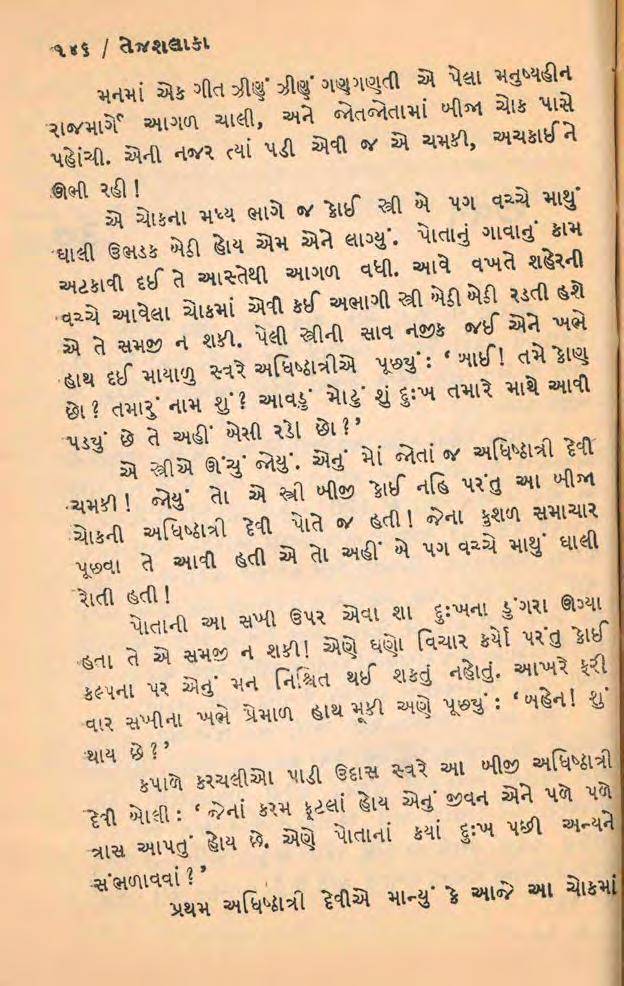 ૧૪૬ / તેજશલાકા
મનમાં એક ગીત ઝીણું ઝીણું ગણગણતી એ પેલા મનુષ્યહીન
રાજમાર્ગે આગળ ચાલી, અને જોતજોતામાં બીજા ચોક પાસે
પહોંચી. એની નજર ત્યાં પડી એવી જ એ ચમકી, અચકાઈને
ઊભી રહી !
એ ચોકના મધ્ય ભાગે જ કોઈ સ્ત્રી બે પગ વચ્ચે માથું
ઘાલી ઉભડક બેઠી હોય એમ એને લાગ્યું. પોતાનું ગાવાનું કામ
અટકાવી દઈ તે આસ્તેથી આગળ વધી. આવે વખતે શહેરની
વચ્ચે આવેલા ચોકમાં એવી કઈ અભાગી સ્ત્રી બેઠી બેઠી રડતી હશે
એ તે સમજી ન શકી. પેલી સ્ત્રીની સાવ નજીક જઈ એને ખભે
હાથ દઈ માયાળુ સ્વરે અધિષ્ઠાત્રીએ પૂછ્યું : ‘ બાઈ ! તમે કોણ
છો ? તમારું નામ શું ? આવડું મોટું શું દુઃખ તમારે માથે આવી
પડ્યું છે તે અહીં બેસી રડો છો ? ’
એ સ્ત્રીએ ઊંચું જોયું. એનું મોં જોતાં જ અધિષ્ઠાત્રી દેવી
ચમકી ! જોયું તો એ સ્ત્રી બીજી કોઈ નહિ પરંતુ આ બીજા
ચોકની અધિષ્ઠાત્રી દેવી પોતે જ હતી ! જેના કુશળ સમાચાર
પૂછવા તે આવી હતી એ તો અહીં બે પગ વચ્ચે માથું ઘાલી
રોતી હતી !
પોતાની આ સખી ઉપર એવા શા દુઃખના ડુંગરા ઊગ્યા
હતા તે એ સમજી ન શકી ! એણે ઘણો વિચાર કર્યો પરંતુ કોઈ
કલ્પના પર એનું મન નિશ્ચિત થઈ શકતું નહોતું. આખરે ફરી
વાર સખીના ખભે પ્રેમાળ હાથ મૂકી અણે પૂછ્યું : ‘ બહેન ! શું
થાય છે ? ’
કપાળે કરચલીઓ પાડી ઉદાસ સ્વરે આ બીજી અધિષ્ઠાત્રી
દેવી બોલી : ‘ જેનાં કરમ ફૂટલાં હોય એનું જીવન એને પળે પળે
ત્રાસ આપતું હોય છે. એણે પોતાનાં કયાં દુઃખ પછી અન્યને
સંભળાવવાં ? ’
પ્રથમ અધિષ્ઠાત્રી દેવીએ માન્યું કે આજે આ ચોકમાં